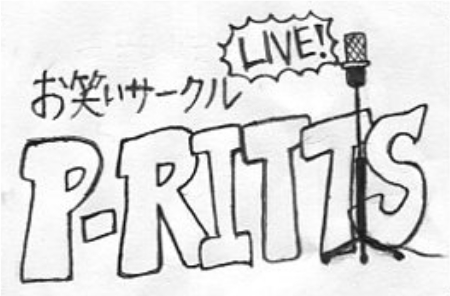 LIVE!
お笑いサークル
P-RITTS